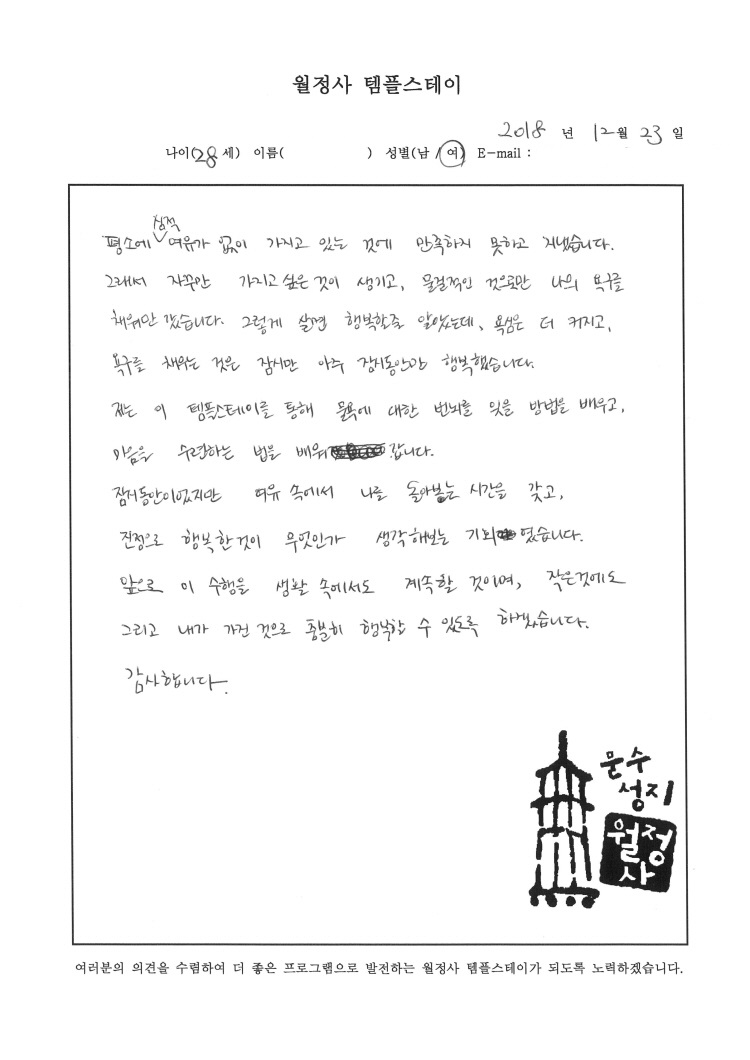 월정사 템플스테이
2018 년 12월 23 일
나이(28 세) 이름( ) 성별(남 / 여) E-mail :
심적
평소에 여유가 없이 가지고 있는 것에 만족하지 못하고 지냈습니다.
그래서 자꾸만 가지고 싶은 것이 생기고, 물질적인 것으로만 나의 욕구를
채워만 갔습니다. 그렇게 살면 행복할줄 알았는데, 욕심은 더 커지고,
욕구를 채워는 것은 잠시만 아주 잠시동안만 행복했습니다.
저는 이 템플스테이를 통해 물욕에 대한 번뇌를 잊을 방법을 배우고,
마음을 수련하는 법을 배워 갑니다.
잠시동안이었지만 여유 속에서 나를 돌아볼는 시간을 갖고,
진정으로 행복한것이 무엇인가 생각해보는 기회였습니다.
앞으로 이 수행을 생활 속에서도 계속할 것이며, 작은것에도
그리고 내가 가진 것으로 충분히 행복할 수 있도록 하겠습니다.
감사합니다.
문수
성지
월정
사
여러분의 의견을 수렴하여 더 좋은 프로그램으로 발전하는 월정사 템플스테이가 되도록 노력하겠습니다.